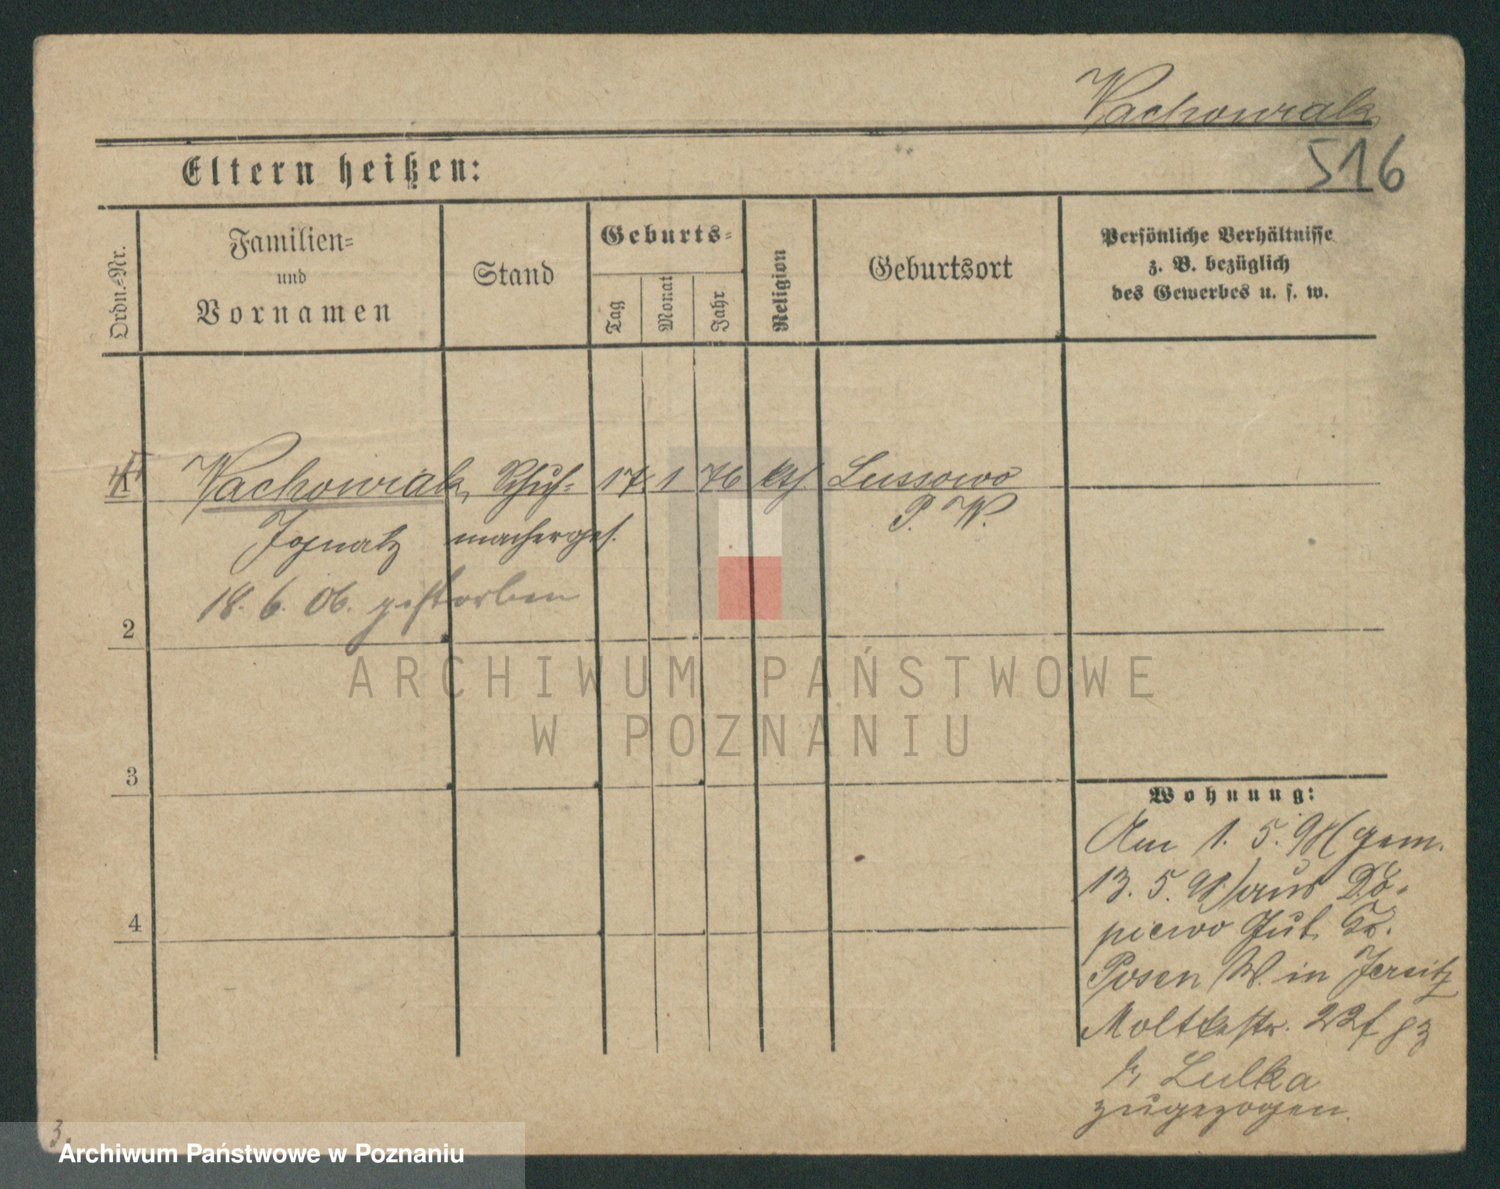 Wachowiak
516
Eltern heißen:
Ordn.-Nr.
Familien-
und
Vornamen
Stand
Geburts-
Tag
Monat
Jahr
Religion
Geburtsort
Persönliche Verhältnisse
z. B. bezüglich
des Gewerbes u. s. w.
Wachowiak Schuh- 17. 1 76 kth. Lussowo
Ignatz machergs. P. W.
18. 6. 06. gestorben
2
3
4
Wohnung:
Am 1. 5. 98 (gem.
13. 5. 98) aus Do-
piewo Kr.
Posen W. in Jersitz
Moltkestr. 22
Lulka
zugezogen.
3.
ARCHIWUM PAŃSTWOWE
W POZNANIU
Archiwum Państwowe w Poznaniu